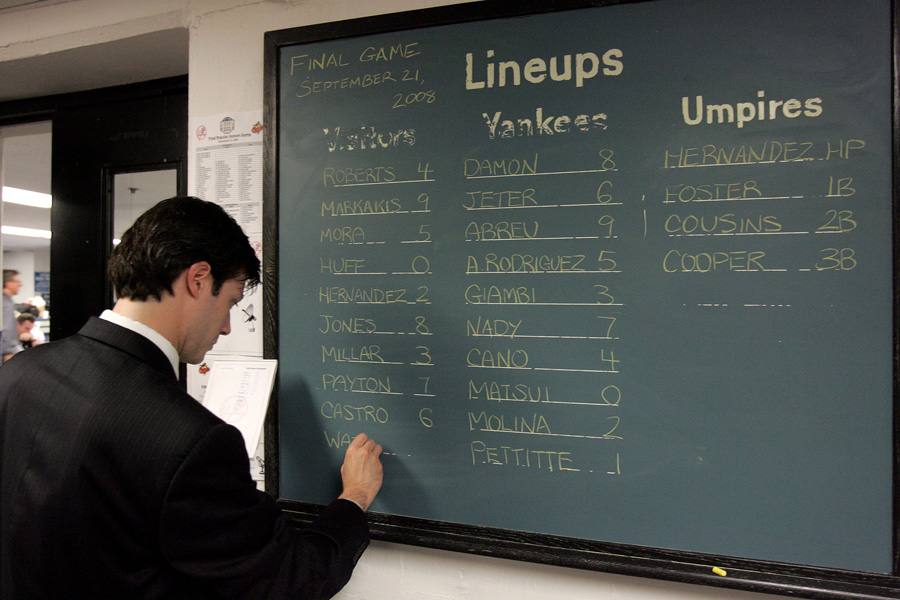 FINAL GAME
SEPTEMBER 21,
2008
Lineups
Visitors
ROBERTS 4
MARKAKIS 9
MORA 5
HUFF 0
HERNANDEZ 2
JONES 8
MILLAR 3
PAYTON 7
CASTRO 6
WA
Yankees
DAMON 8
JETER 6
ABREU 9
A.RODRIGUEZ 5
GIAMBI 3
NADY 7
CANO 4
MATSUI 0
MOLINA 2
PETTITTE 1
Umpires
HERNANDEZ HP
FOSTER 1B
COUSINS 2B
COOPER 3B